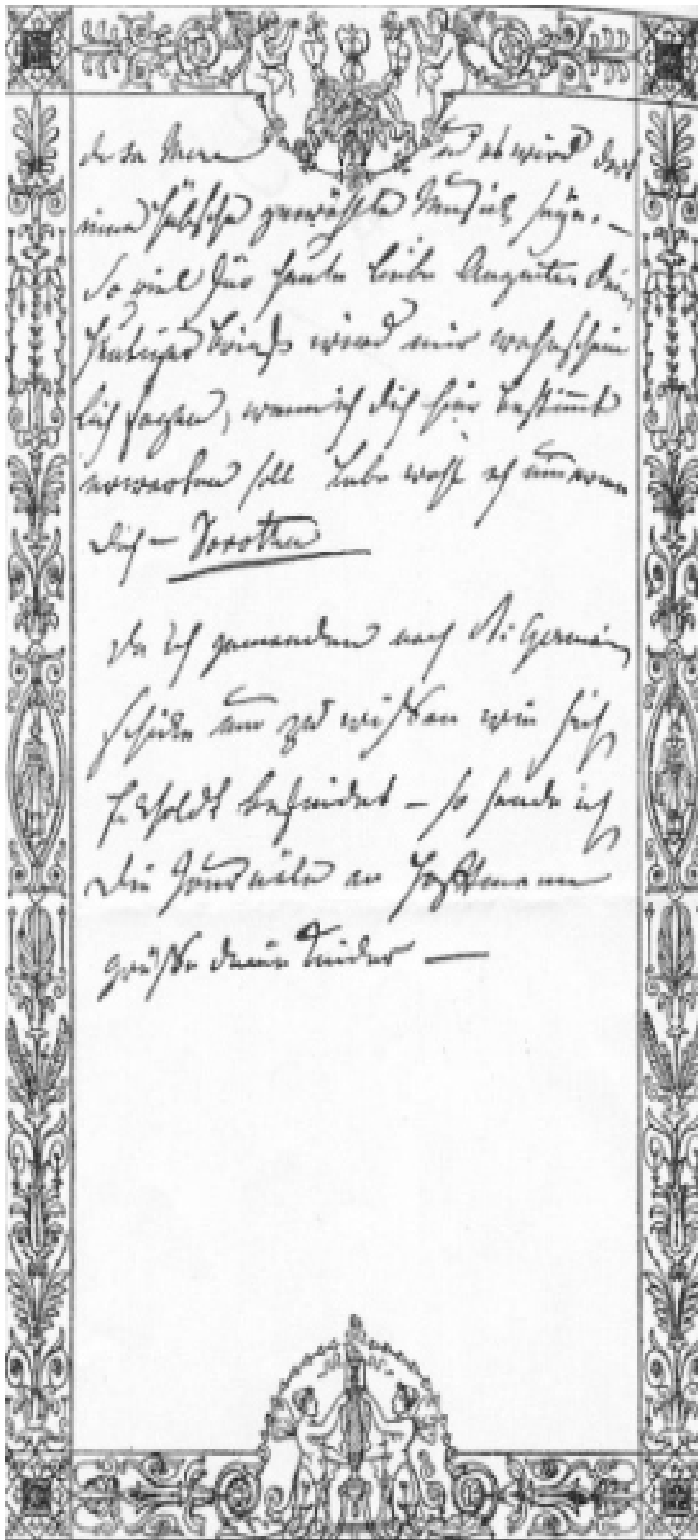 de sa Mere und es wird doch
eine hübsche gewählte Musick seyn. –
So viel für heute liebe Auguste, dein
heutiger Brief wird mir wahrschein
lich sagen, wann ich dich hier bestimmt
erwarten soll lebe wohl ich umarme
dich – Dorothea
Da ich jemanden nach St. Germain
schicke um zu wißen wie sich
befindet – so sende ich
die Journäle an
grüße deine Kinder —